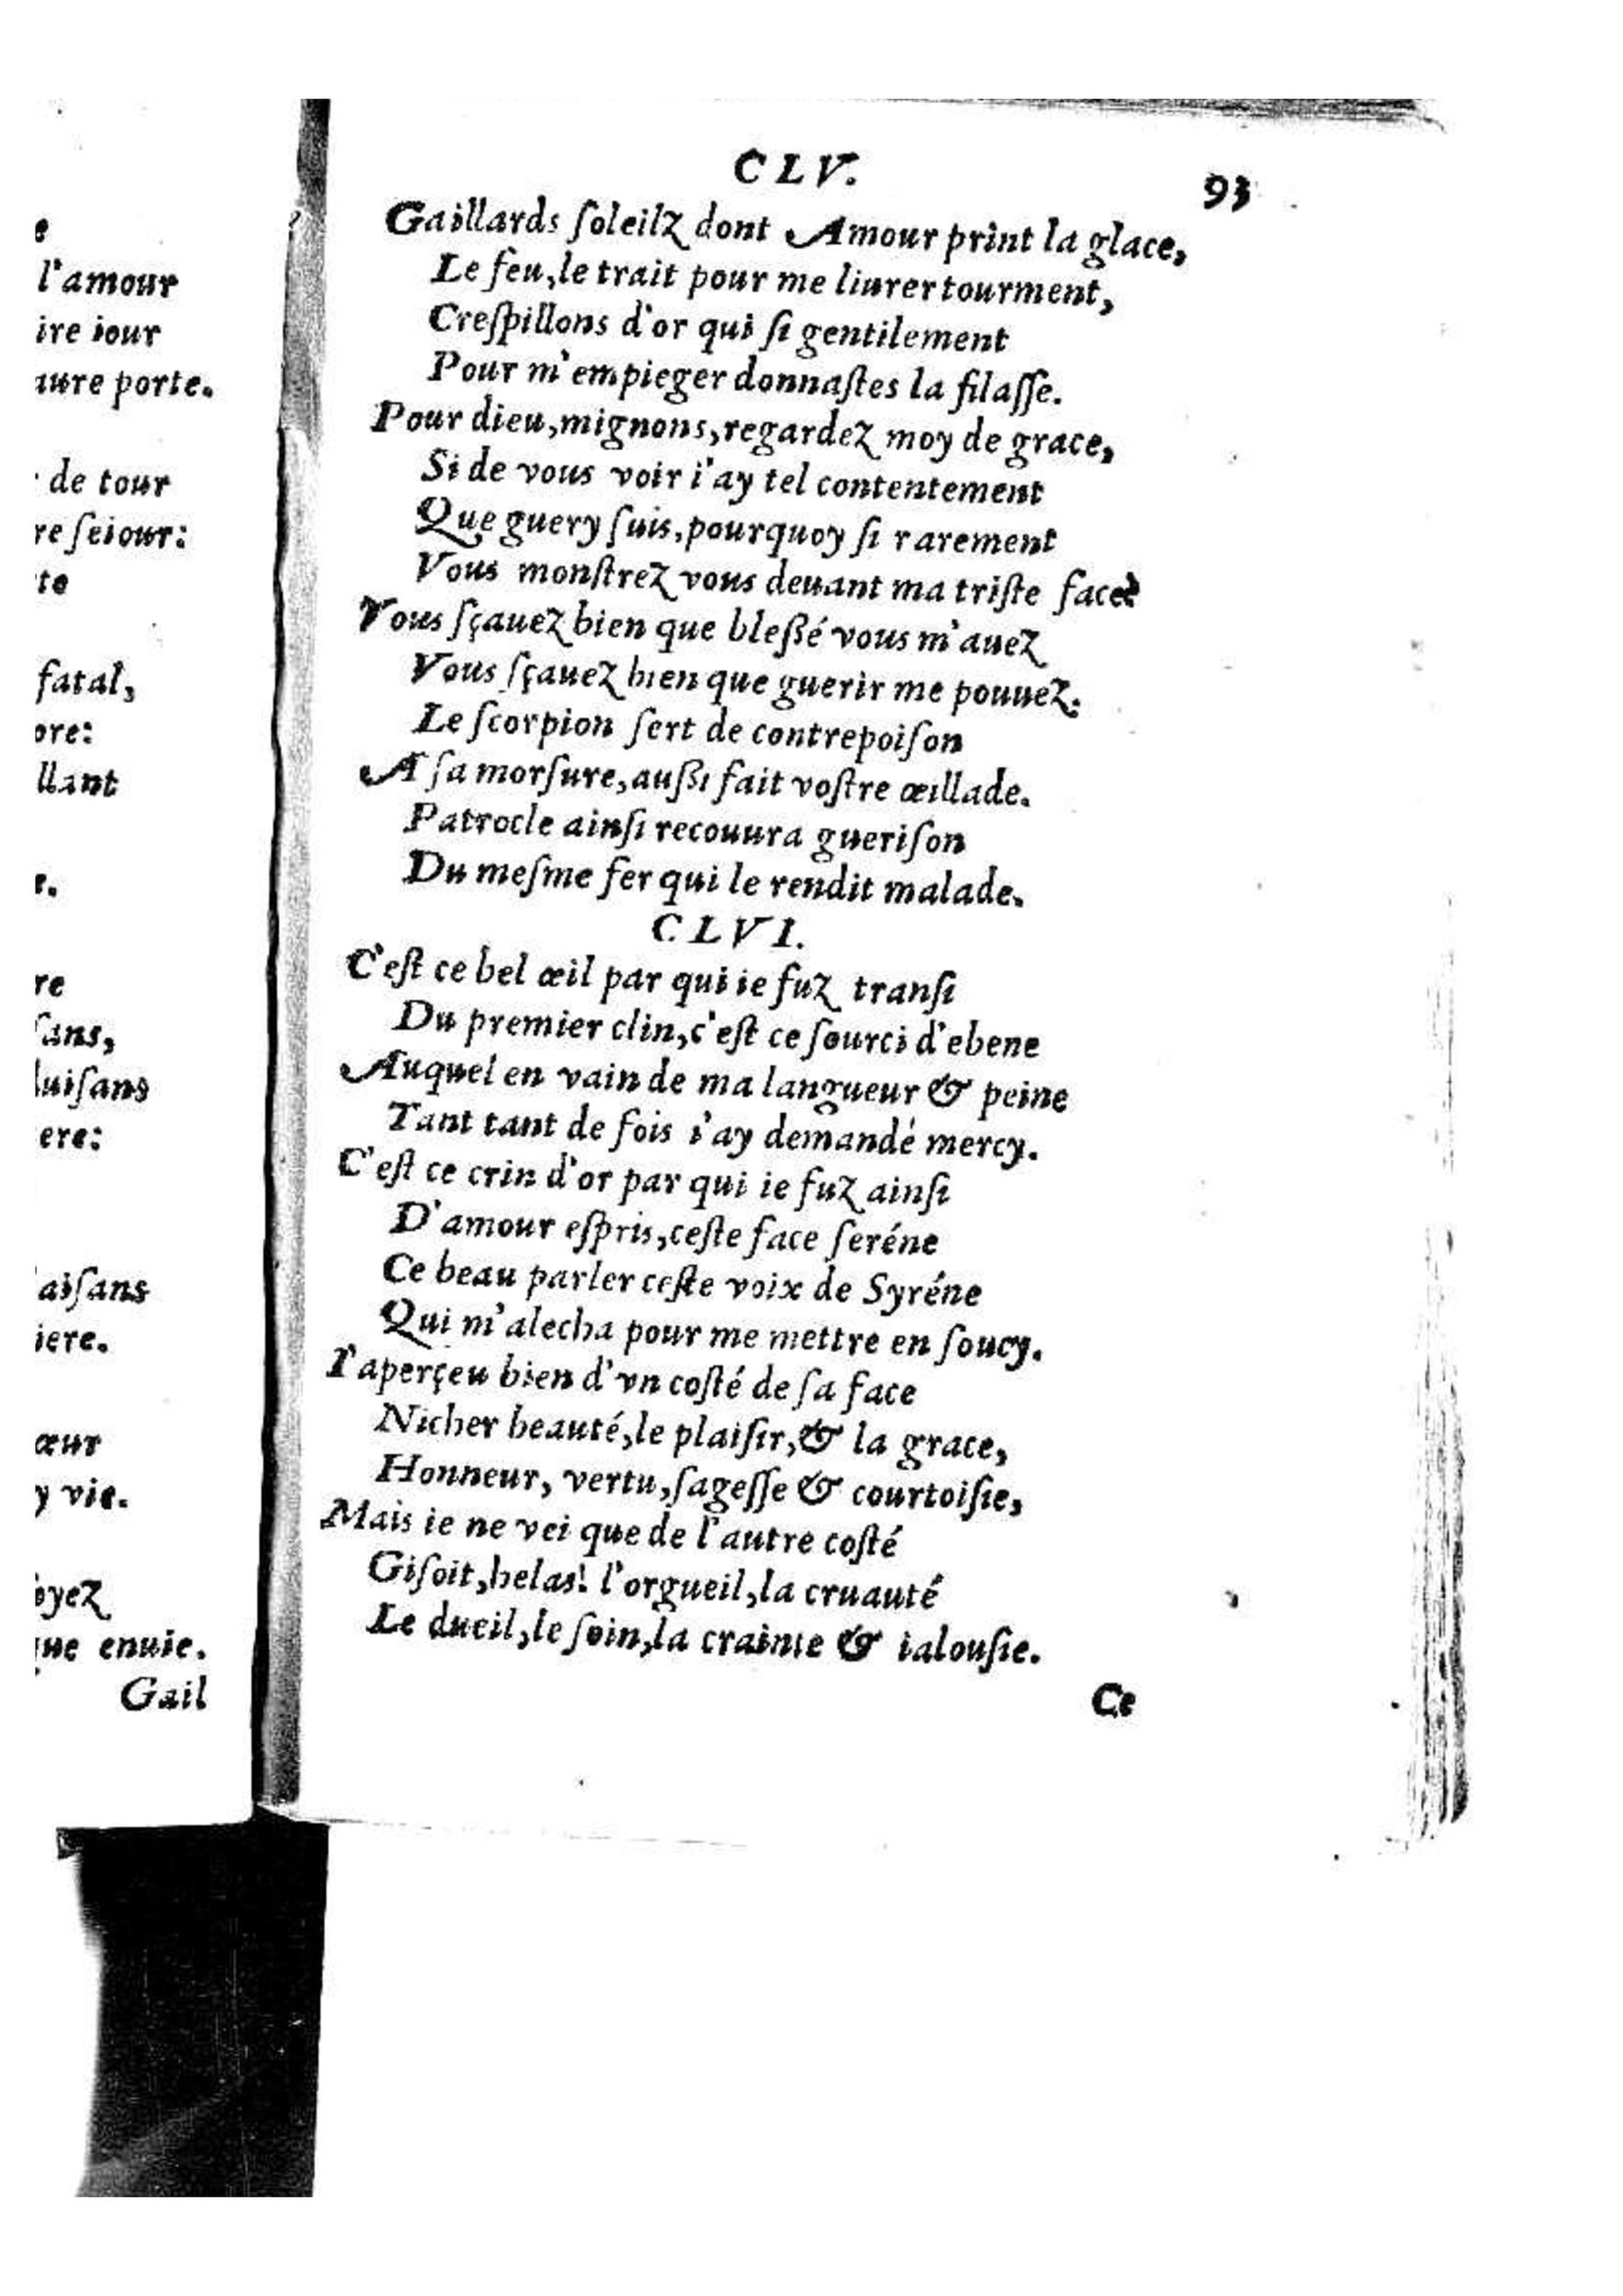 e
l'amour
ire iour
aure porte.
de tour
re ſeiour:
te
fatal,
ore:
llant
e.
re
ſans,
luiſans
ere:
aiſans
iere.
œur
y vie.
oyez
que enuie.
Gail
CLV.
93
Gaillards ſoleilz dont Amour print la glace,
Le feu, le trait pour me liurer tourment,
Creſpillons d'or qui ſi gentilement
Pour m'empieger donnaſtes la filaſſe.
Pour dieu, mignons, regardez moy de grace,
Si de vous voir i'ay tel contentement
Que guery ſuis, pourquoy ſi rarement
Vous monſtrez vous deuant ma triſte face?
Vous ſçauez bien que bleßé vous m'auez
Vous ſçauez bien que guerir me pouuez:
Le ſcorpion ſert de contrepoiſon
A ſa morſure, außi fait voſtre œillade.
Patrocle ainſi recouura gueriſon
Du meſme fer qui le rendit malade.
CLVI.
C'eſt ce bel œil par qui ie fuz tranſi
Du premier clin, c'eſt ce ſourci d'ebene
Auquel en vain de ma langueur & peine
Tant tant de fois i'ay demandé mercy.
C'eſt ce crin d'or par qui ie fuz ainſi
D'amour eſpris, ceſte face ſeréne
Ce beau parler ceſte voix de Syréne
Qui m'alecha pour me mettre en ſoucy.
I'aperçeu bien d'vn coſté de ſa face
Nicher beauté, le plaiſir, & la grace,
Honneur, vertu, ſageſſe & courtoiſie,
Mais ie ne vei que de l'autre coſté
Giſoit, helas! l'orgueil, la cruauté
Le dueil, le ſoin, la crainte & ialouſie.
Ce